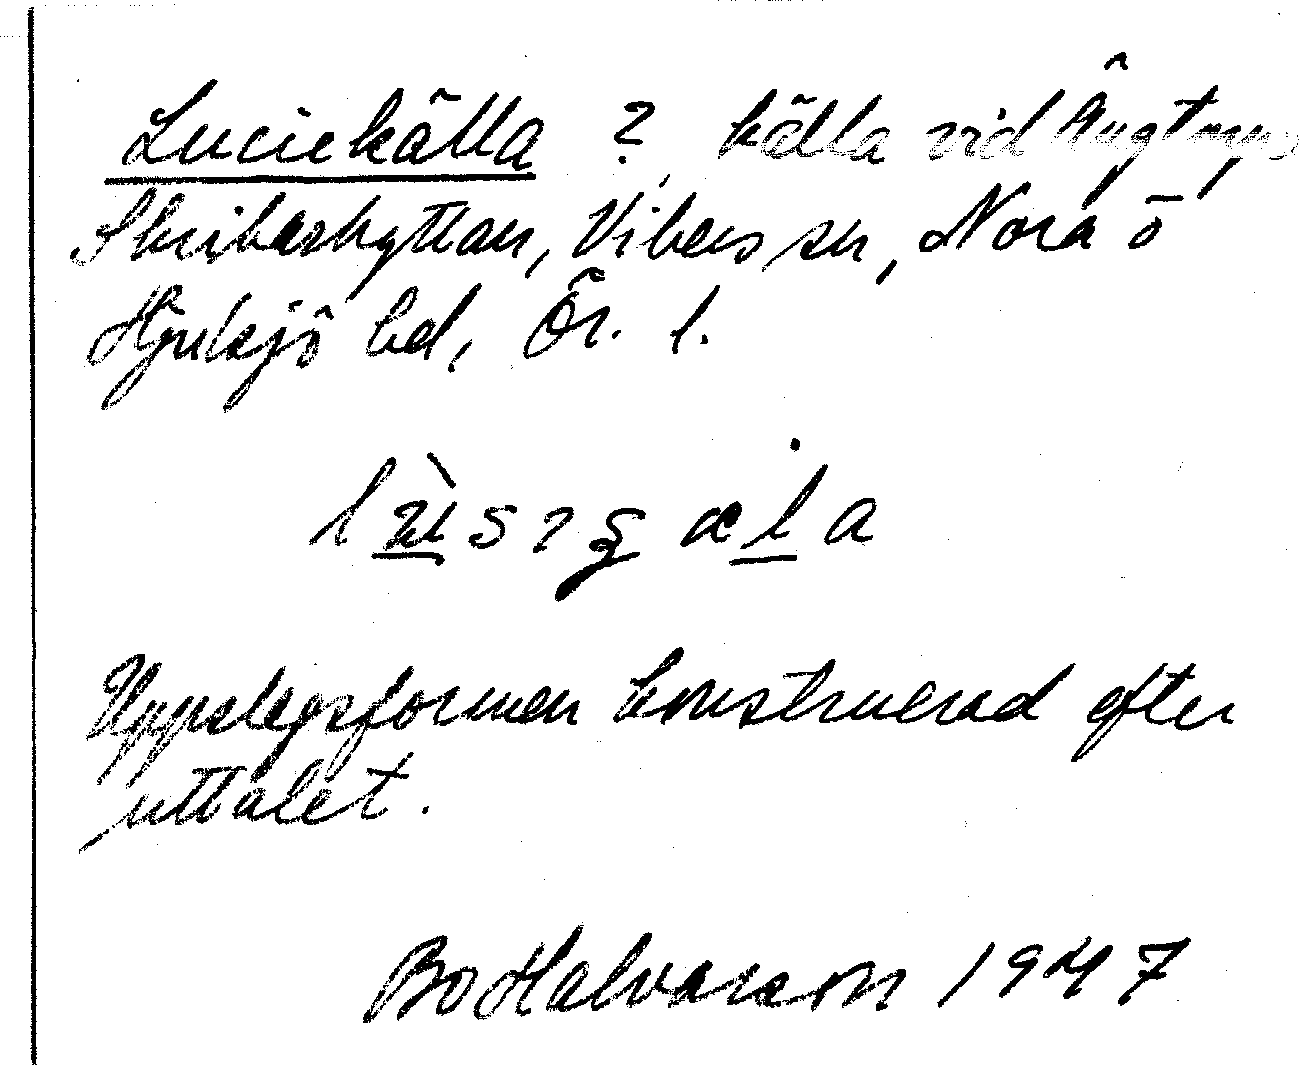 Luciekälla ? källa vid Ångtorp,
Skribashyttan, Vibers sn, Nora o
Hjulsjö bd, Ör. l.
Uppslagsformen konstruerad efter
uttalet.
Bo Halvarsson 1947